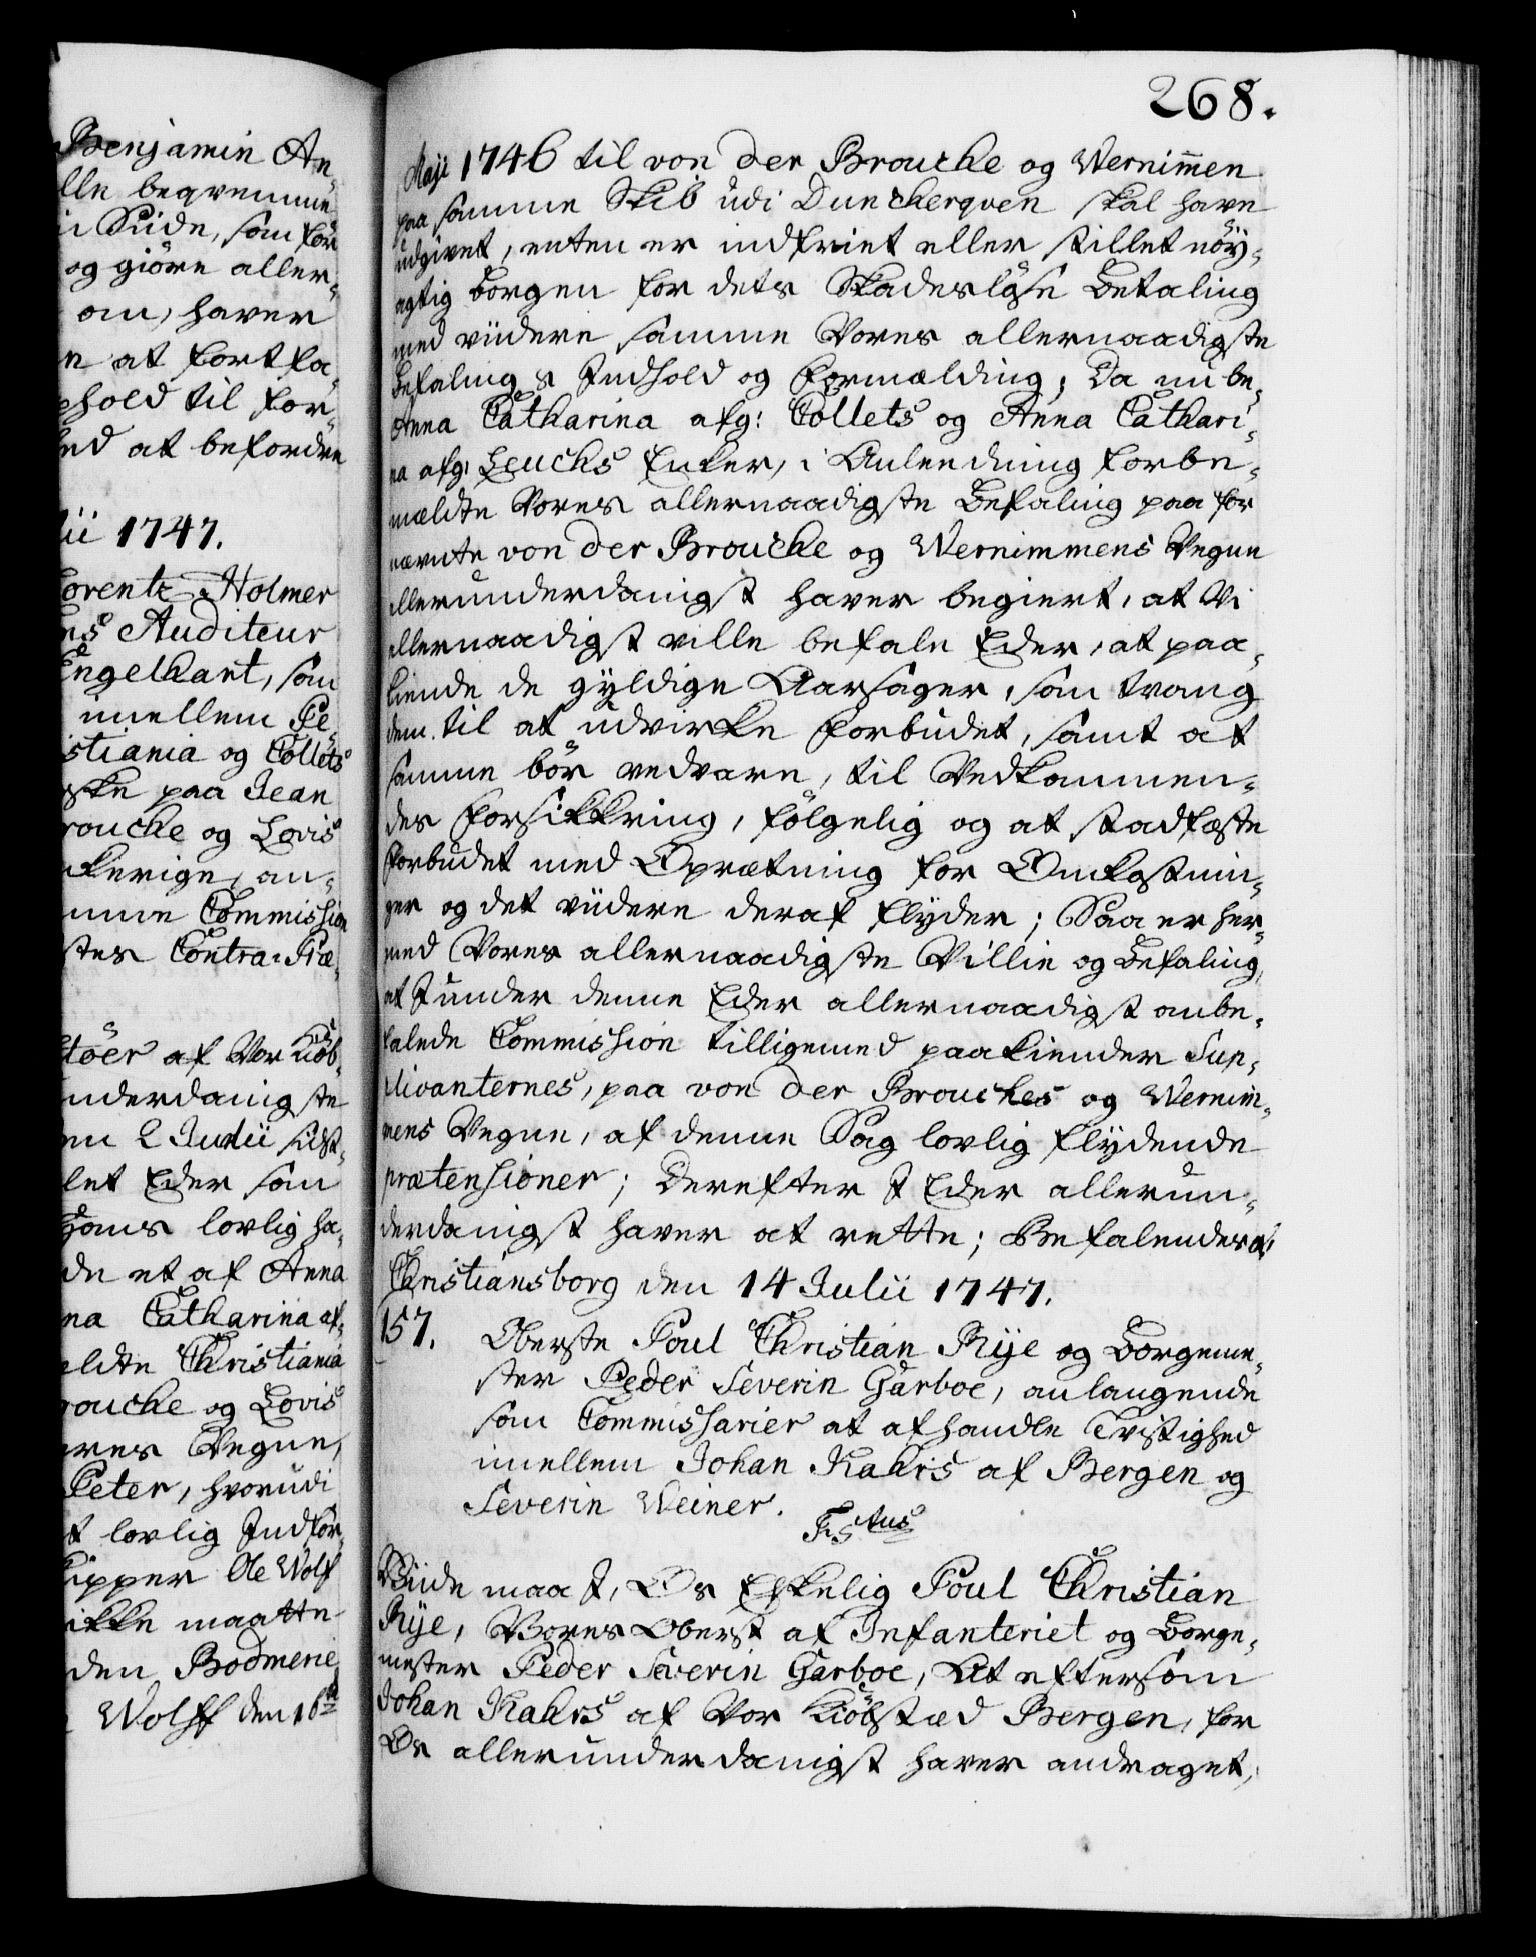 Benjamin An-
lle beqvemme
i Siide, som for
og giöre aller-
om, haver
e at fortfa-
hold til for-
ed at befordre
ii 1747.
Lorentz Holmer
es Auditeur
Engelhart, som
imellem Pe-
istiania og Collets
ske paa Jean
rouche og Lovis
nkerige, an-
mme Commission
stes Contra-Præ-
töer af Vor Kiöb-
underdanigste
en 2 Junii sidst-
let Eder som
hans lovlig ha-
de et af Anna
na Catharina af-
eldte Christiania
rouche og Lovis
eres Vegne,
Peter, hvorudi
t lovlig Indför-
kipper Ole Wolf
ikke maatte
den Bodmerie
Wolff den 16de
268.
Maji 1746 til von der Brouche og Wernimmen
paa samme Skib udi Dunckerqven skal have
udgivet, enten er indfriet eller stillet nöy-
agtig borgen for dets Skadeslöse Betaling
med viidere samme Vores allernaadigste
Befalings Indhold og Formælding; Da nu be-
Anna Catharina afg: Collets og Anna Cathari-
na afg: Leuchs Enker, i Anleedning forbe-
mældte Vores allernaadigste Befaling paa for
nævnte von der Brouche og Wernimmens Vegne
allerunderdanigst haver begiert, at Vi
allernaadigst ville befale Eder, at paa-
kiende de gyldige Aarsager, som tvang
dem til at udvirke Forbudet, samt at
samme bör vedvare, til Vedkommen-
des Forsikkring, fölgelig og at stadfæste
Forbudet med Oprætning for Omkostnin-
ger og det viidere deraf flyder; Saa er her-
med Vores allernaadigste Villie og Befaling,
at I under denne Eder allernaadigst anbe-
falede Commission tilligemed paakiender Sup-
plicanternes, paa von der Brouches og Wernim-
mens Vegne, af denne Sag lovlig flydende
prætensioner; Derefter I Eder allerun-
derdanigst haver at rette; Befalendes &
Christiansborg den 14 Julii 1747.
157. Oberste Poul Christian Rije og Borgeme-
ster Peder Severin Garboe, anlangende
som Commissarier at afhandle Tvistighed
imellem Johan Kahrs af Bergen og
Severin Weiner.
F. 5tus
Viide maa I, Os Elskelig Poul Christian
Rije, Vores Oberst af Infanteriet og Borge-
mester Peder Severin Garboe, At eftersom
Johan Kahrs af Vor Kiöbstæd Bergen, for
Os allerunderdanigst haver andraget,